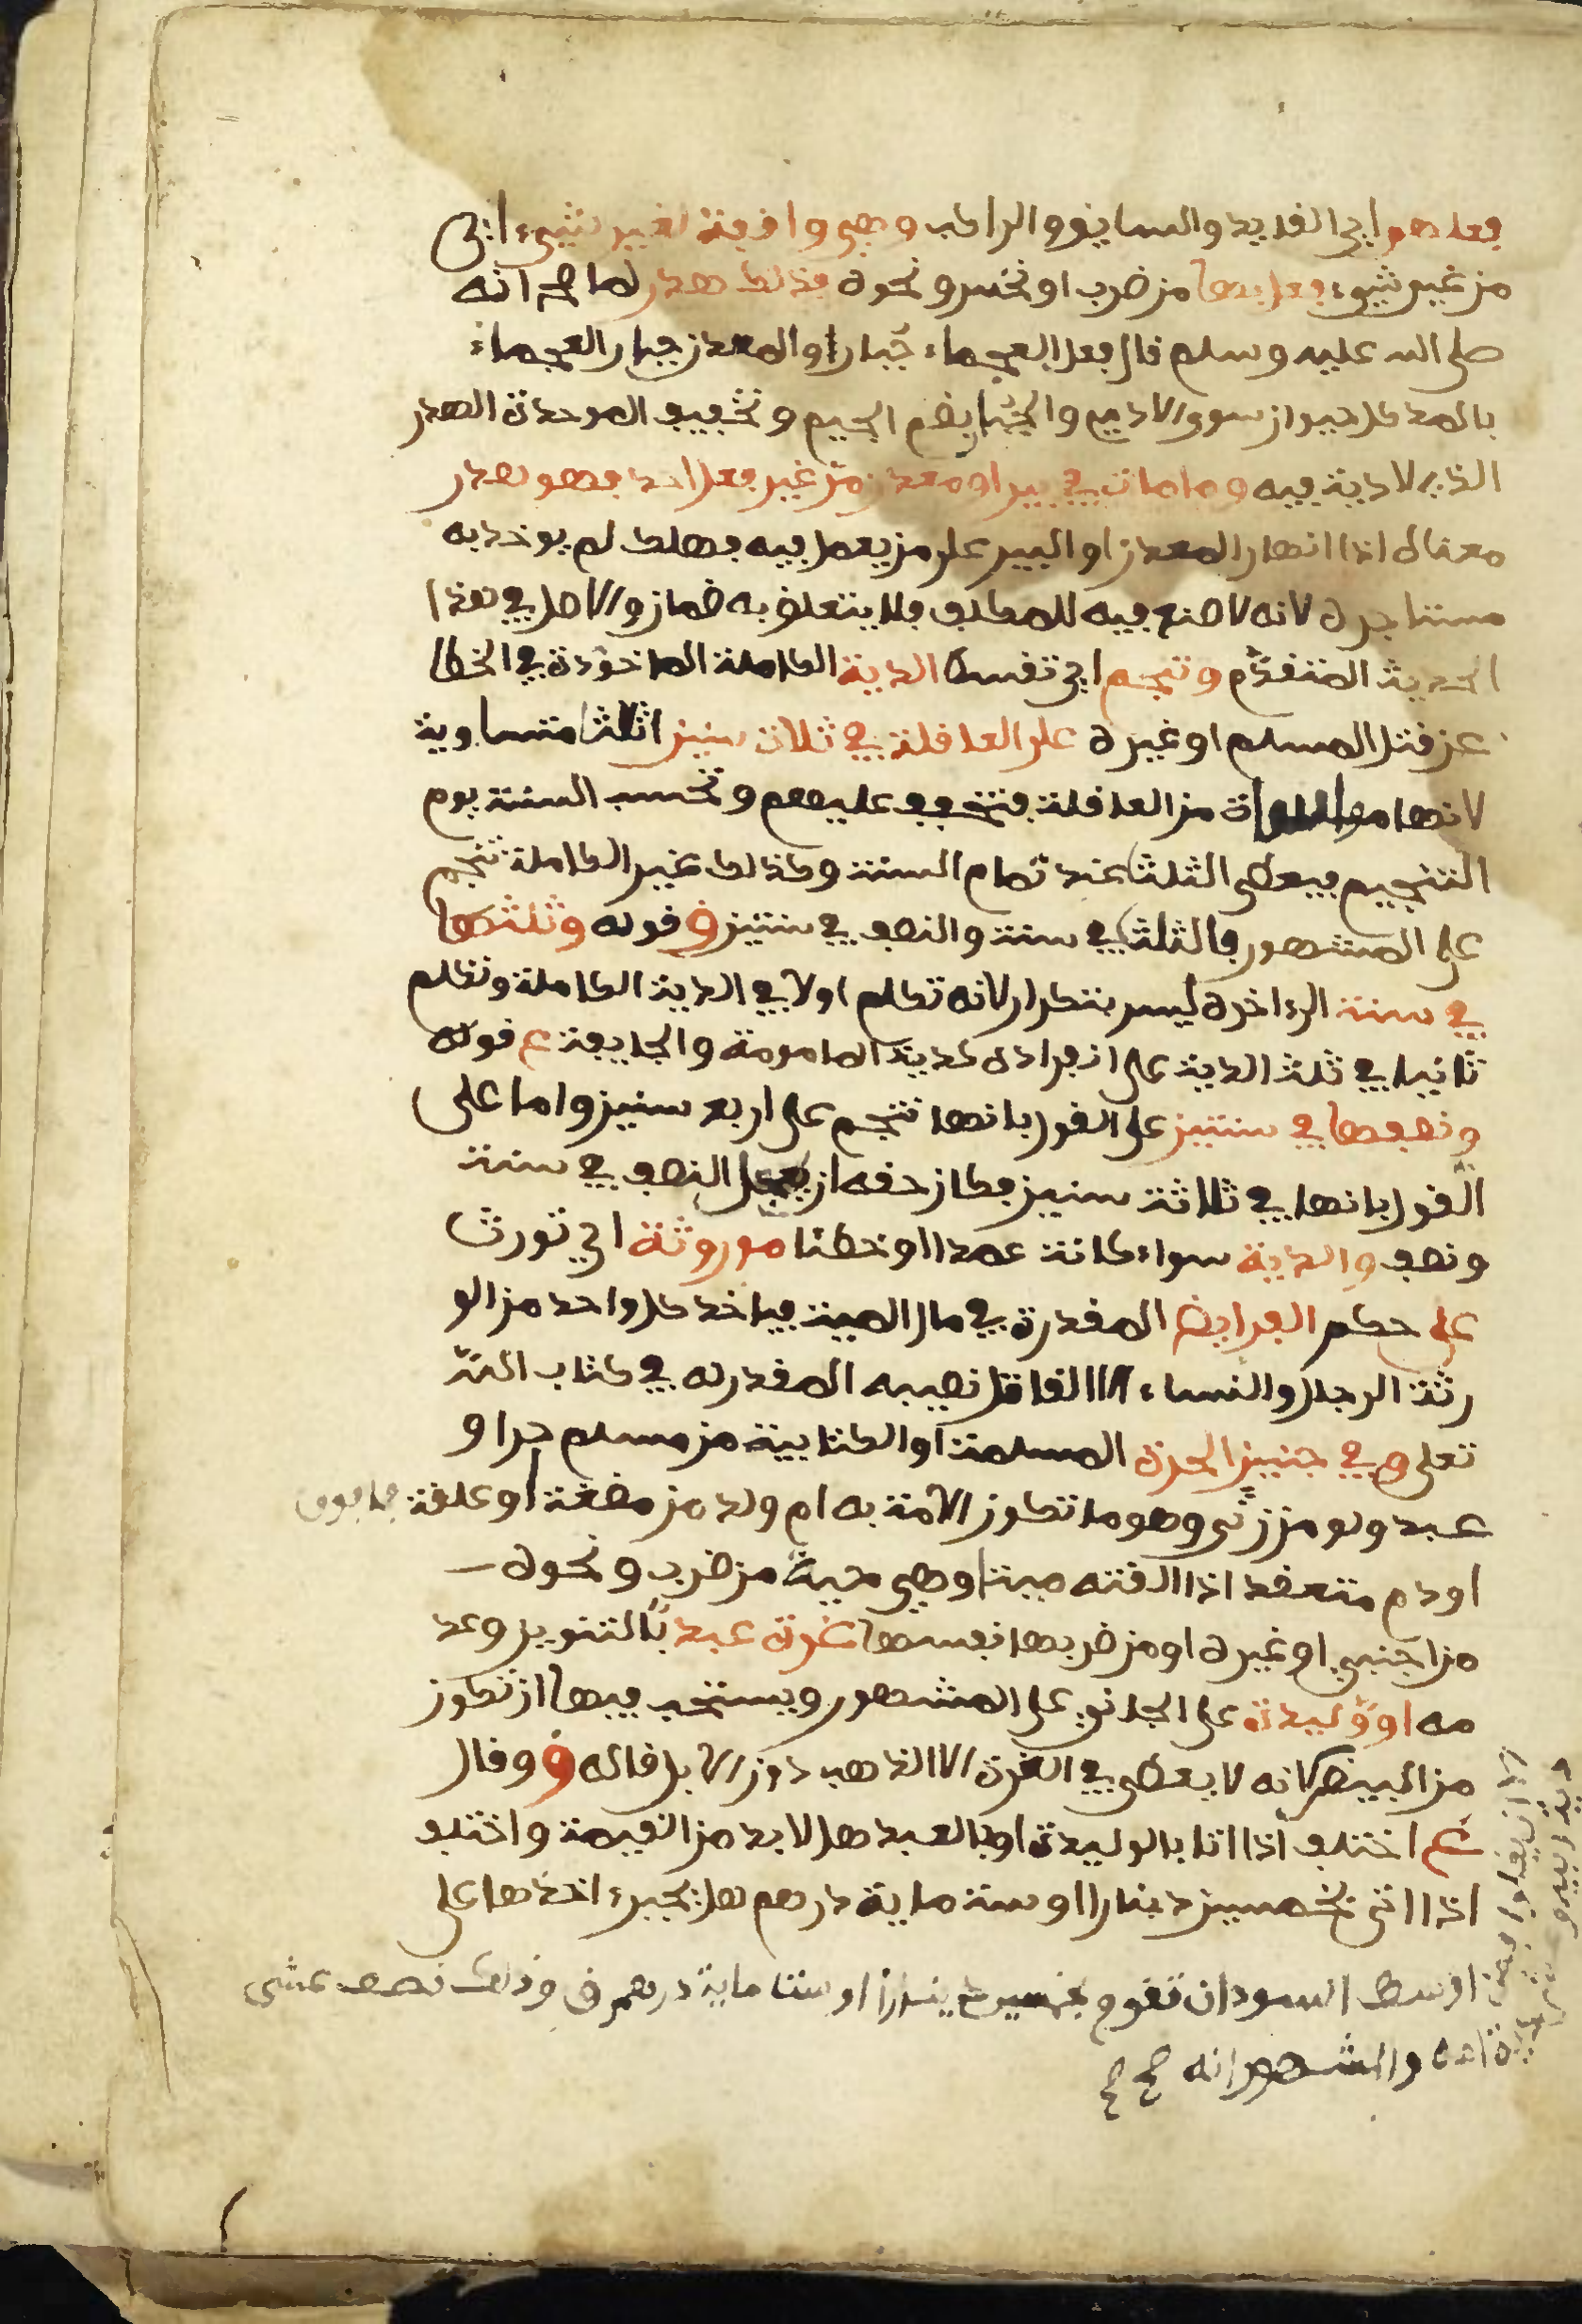 فعلهم اي القايد والسايق والراكب وهي واقفة لغير شيء اي
من غير شيء فعل بها من ضرب او نخس ونحوه فذلك هدر لما صح انه
صلى الله عليه وسلم قال فعل العجماء جُبار والمعدن جبار العجماء
بالمد كل حيوان سوى الادمي والجُبار بضم الجيم وتخفيف الموحدة الهدر
الذي لا دية فيه وما مات في بير او معدن من غير فعل احد فهو هدر
معناه اذا انهار المعدن او البير على من يعمل فيه فهلك لم يوخذ به
مستاجره لانه لا صنع فيه للمكلف فلا يتعلق به ضمان والاصل في هذا
الحديث المتقدّم وتنجم اي تقسط الدية الكاملة الماخوذة في الخطا
عن قتل المسلم او غيره على العاقلة في ثلاث سنين اثلاثا متساوية
لانها مواساة من العاقلة فتخفف عليهم وتحسب السنة يوم
التنجيم فيعطى الثلث عند تمام السنة وكذلك غير الكاملة تنجم
على المشهور فالثلث في سنة والنصف في سنتين ق قوله وثلثها
في سنة الى اخره ليس بتكرار لانه تكلم اولا في الدية الكاملة وتكلم
ثانيا في ثلث الدية على انفراده كدية المامومة والجايفة ع قوله
ونصفها في سنتين على القول بانها تنجم على اربع سنين واما على
القول بانها في ثلاثة سنين فكان حقه ان يجعل النصف في سنة
ونصف والدية سواء كانت عمدا او خطئا موروثة اي تورث
على حكم الفرايض المقدرة في مال الميت فياخذ كل واحد من الو
رثة الرجال والنساء الا القاتل نصيبه المقدر له في كتاب الله
تعلى و في جنين الحرة المسلمة او الكتابية من مسلم حرا و
عبد ولو من زنى وهو ما تكون الامة به ام ولد من مضغة او علقة فما فوق
او دم متعقد اذا القته ميتا وهي حية من ضرب ونحوه
من اجنبي او غيره او من ضربها نفسها غرة عبد بالتنوين وعد
مه او وليدة على الجاني على المشهور ويستحب فيها ان تكون
من البيض لانه لا يعطى في الغرة الا الذهب دون الابل قاله ق وقال
ع اختلف اذا اتا بالوليدة او بالعبد هل لا بد من القيمة واختلف
اذا اتى بخمسين دينارا او ستة ماية درهم هل يجبر اخذها على
اوسط السودان تقوم بخمسين دينارا او ستا ماية درهم ق وذلك نصف عشر
دية امه والمشهور انه صح صح